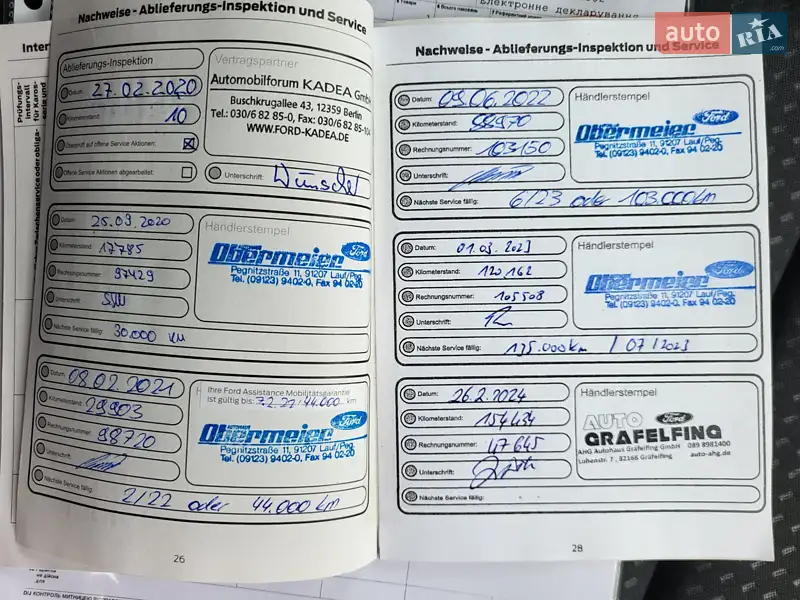 Nachweise - Ablieferungs-Inspektion und Service
Ablieferungs-Inspektion
Datum: 27.02.2020
Kilometerstand: 10
Überprüft auf offene Service Aktionen: ☒
Offene Service Aktionen abgearbeitet: ☐
Vertragspartner
Automobilforum KADEA GmbH
Buschkrugallee 43, 12359 Berlin
Tel.: 030/6 82 85-0, Fax: 030/6 82 85-104
WWW.FORD-KADEA.DE
Unterschrift: Wünschel
Datum: 25.09.2020
Kilometerstand: 17785
Rechnungsnummer: 97429
Unterschrift:
Nächste Service fällig: 30.000 KM
Händlerstempel
Obermeier Ford
Pegnitzstraße 11, 91207 Lauf/Peg.
Tel. (09123) 9402-0, Fax 94 02-20
Datum: 08.02.2021
Kilometerstand: 29903
Rechnungsnummer: 98720
Unterschrift:
Nächste Service fällig: 2/22 oder 44.000 km
Ihre Ford Assistance Mobilitätsgarantie
ist gültig bis: 7.2.22 / 44.000 km
Obermeier Ford
Pegnitzstraße 11, 91207 Lauf/Peg.
Tel. (09123) 9402-0, Fax 94 02-20
26
Nachweise - Ablieferungs-Inspektion und Service
Datum: 09.06.2022
Kilometerstand: 88970
Rechnungsnummer: 103150
Unterschrift:
Nächste Service fällig: 6/23 oder 103.000km
Händlerstempel
Obermeier Ford
Pegnitzstraße 11, 91207 Lauf/Peg.
Tel. (09123) 9402-0, Fax 94 02-20
Datum: 01.03.2023
Kilometerstand: 120162
Rechnungsnummer: 105508
Unterschrift:
Nächste Service fällig: 135.000km / 07/2023
Händlerstempel
Obermeier Ford
Pegnitzstraße 11, 91207 Lauf/Peg.
Tel. (09123) 9402-0, Fax 94 02-20
Datum: 26.2.2024
Kilometerstand: 154434
Rechnungsnummer: 47645
Unterschrift:
Nächste Service fällig:
Händlerstempel
AUTO Ford
GRÄFELFING
AHG Autohaus Gräfelfing GmbH 089 8981400
, 82166 Gräfelfing auto-ahg.de
28
Електронне декларування
auto RIA